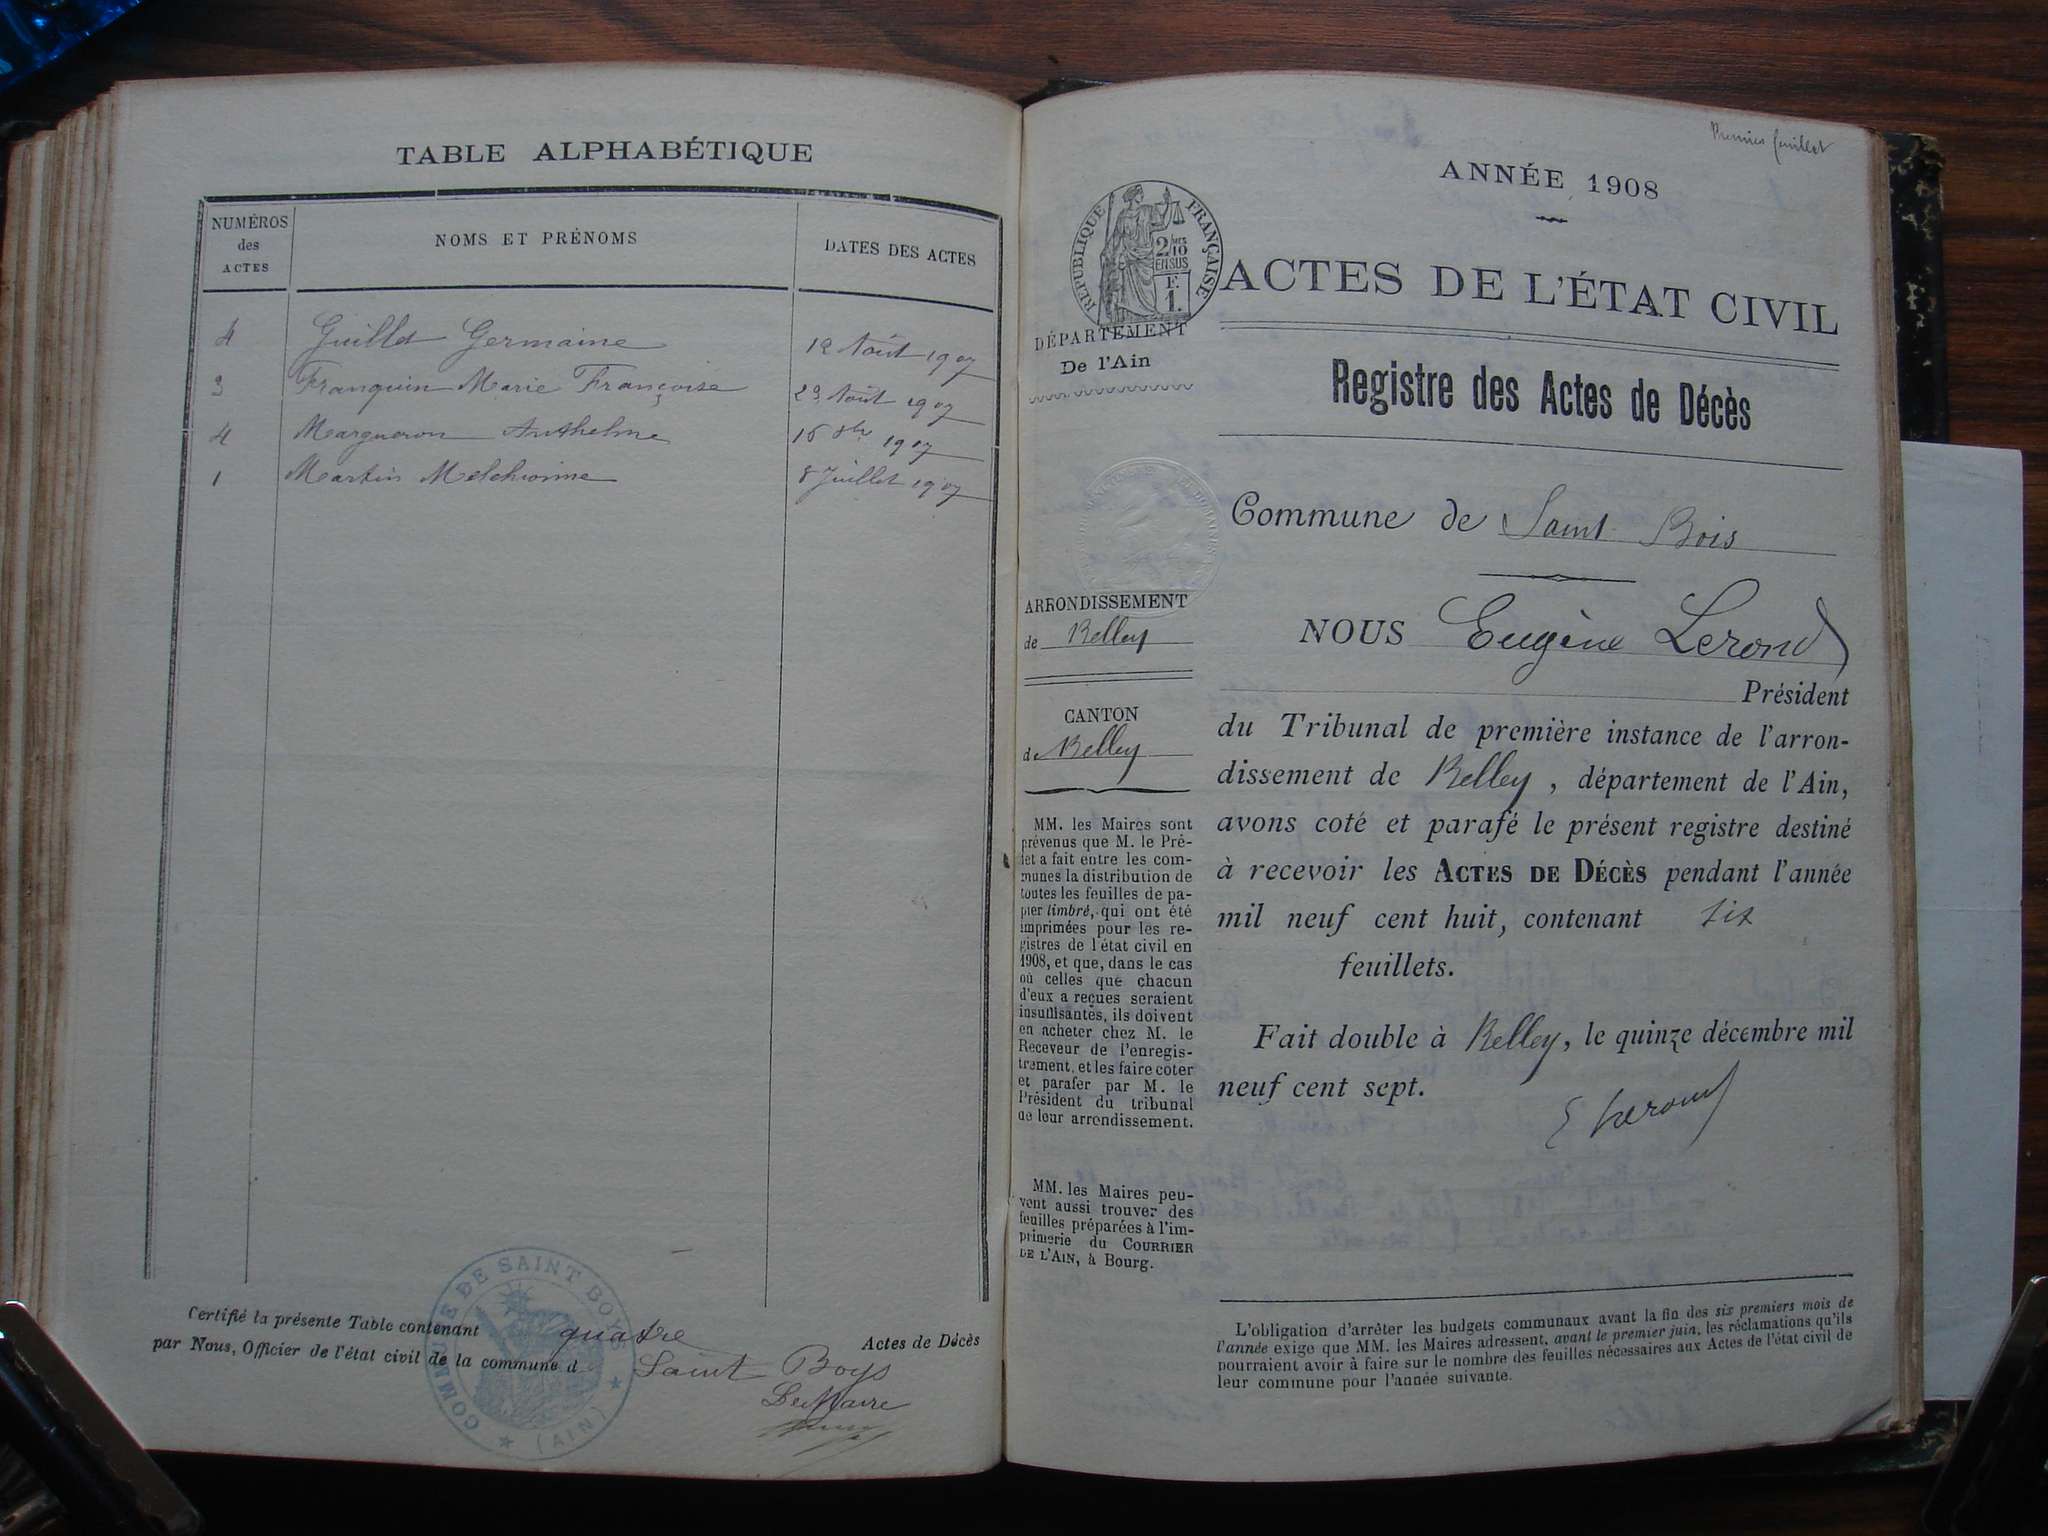 TABLE ALPHABÉTIQUE
NUMÉROS
des
ACTES
NOMS ET PRÉNOMS
DATES DES ACTES
4 Guillet Germaine 12 Août 1907
3 Franquin Marie Françoise 23 Août 1907
4 Margueron Anthelme 16 8bre 1907
1 Martin Melchionne 8 Juillet 1907
Certifié la présente Table contenant quatre Actes de Décès
par Nous, Officier de l'état civil de la commune d Saint Boys
Le Maire
COMMUNE DE SAINT BOYS
(AIN)
Premier feuillet
ANNÉE 1908
RÉPUBLIQUE FRANÇAISE
2/10
EN SUS
F.
1.
ACTES DE L'ÉTAT CIVIL
DÉPARTEMENT
De l'Ain
Registre des Actes de Décès
Commune de Saint Bois
ARRONDISSEMENT
de Belley
CANTON
de Belley
MM. les Maires sont
prévenus que M. le Pré-
fet a fait entre les com-
munes la distribution de
toutes les feuilles de pa-
pier timbré, qui ont été
imprimées pour les re-
gistres de l'état civil en
1908, et que, dans le cas
où celles que chacun
d'eux a reçues seraient
insuffisantes, ils doivent
en acheter chez M. le
Receveur de l'enregis-
trement, et les faire coter
et parafer par M. le
Président du tribunal
de leur arrondissement.
MM. les Maires peu-
vent aussi trouver des
feuilles préparées à l'im-
primerie du COURRIER
DE L'AIN, à Bourg.
NOUS Eugène Lerond
Président
du Tribunal de première instance de l'arron-
dissement de Belley, département de l'Ain,
avons coté et parafé le présent registre destiné
à recevoir les ACTES DE DÉCÈS pendant l'année
mil neuf cent huit, contenant six
feuillets.
Fait double à Belley, le quinze décembre mil
neuf cent sept.
E Lerond
L'obligation d'arrêter les budgets communaux avant la fin des six premiers mois de
l'année exige que MM. les Maires adressent, avant le premier juin, les réclamations qu'ils
pourraient avoir à faire sur le nombre des feuilles nécessaires aux Actes de l'état civil de
leur commune pour l'année suivante.